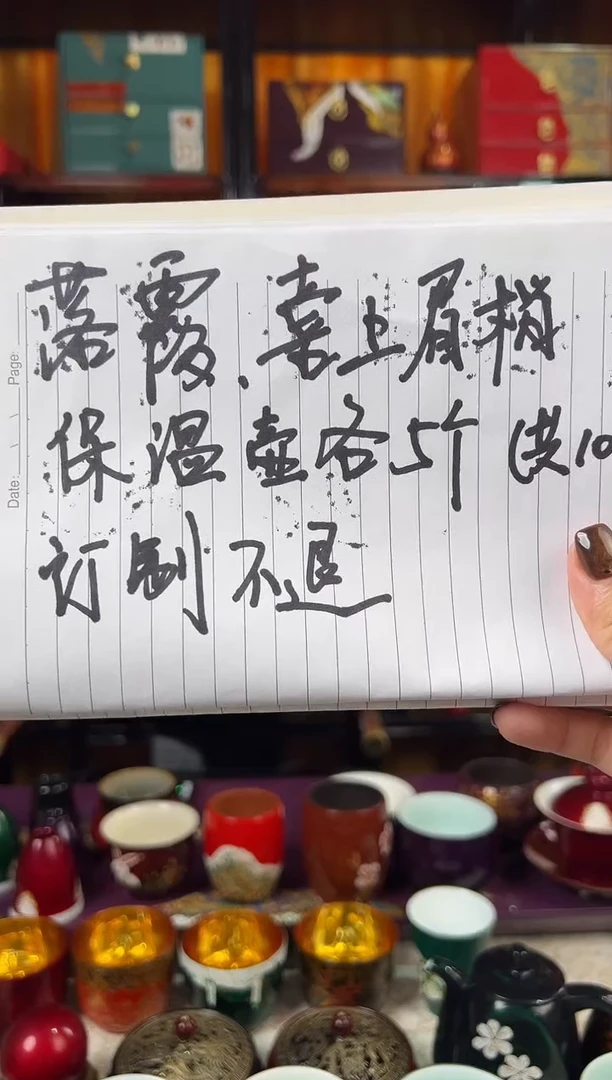 落霞、喜上眉梢
保温壶各5个(共10
订制不退
Date:
Page: